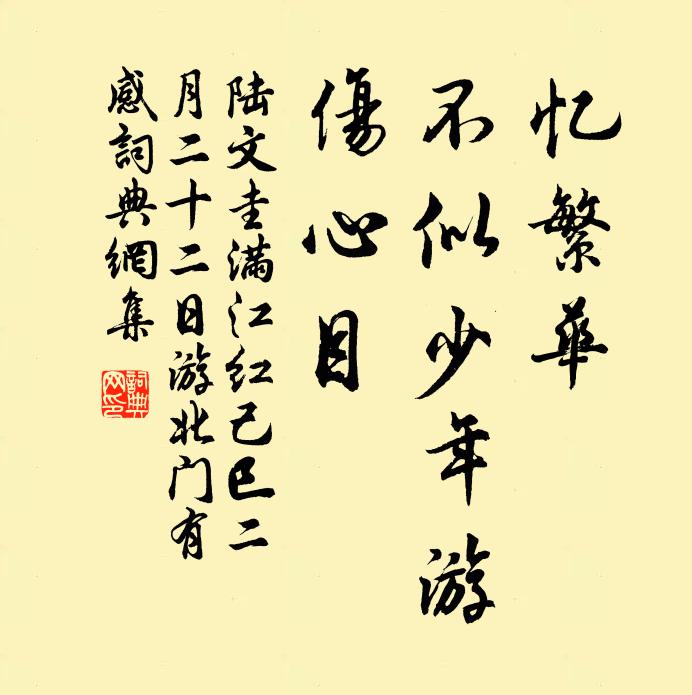 忆繁華
不似少年游
傷心目
陆文圭滿江红己巳二
月二十二日游北门有
感詞典網集
詞典
网印